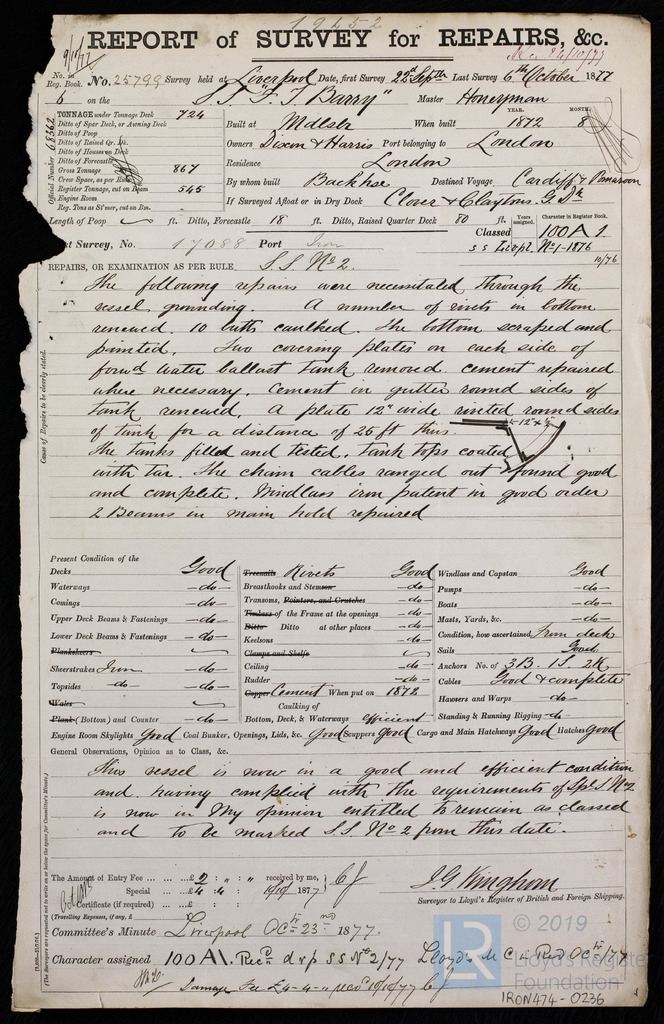 19452
9/10/77
REPORT of SURVEY for REPAIRS, &c.
Rec. 24/10/77
No. in Reg. Book. No. 25799 Survey held at Liverpool Date, first Survey 22d Septr Last Survey 6th October 1877
6 on the S.S. "F. T. Barry" Master Honeyman
TONNAGE under Tonnage Deck 724
Ditto of Spar Deck, or Awning Deck
Ditto of Poop
Ditto of Raised Qr. Dk.
Ditto of Houses on Deck
Ditto of Forecastle
Gross Tonnage 867
Crew Space, as per Rule
Register Tonnage, cut on Beam 545
Engine Room
Reg. Tons as St'mer, cut on Bm.
Official Number 68362
Built at Mdlsbr When built YEAR. 1872 MONTH. 8
Owners Dixon & Harris Port belonging to London
Residence London
By whom built Backhse Destined Voyage Cardiff &
If Surveyed Afloat or in Dry Dock Clover & Clayton's G. Dk
Length of Poop ft. Ditto, Forecastle 18 ft. Ditto, Raised Quarter Deck 80 ft.
Years assigned. Character in Register Book.
Classed 100 A 1.
S S Livpl. No 1-1876
10/76
st Survey, No. 17088 Port Iron
REPAIRS, OR EXAMINATION AS PER RULE. S.S. No 2.
The following repairs were necessitated through the
vessel grounding. A number of rivets in bottom
renewed. 10 butts caulked. The bottom scraped and
painted. Two covering plates on each side of
forwd water ballast tank removed. cement repaired
where necessary. Cement in gutter round sides of
tank renewed. A plate 12" wide riveted round sides
of tank for a distance of 25 ft thus.
The tanks filled and tested. Tank tops coated
with tar. The chain cables ranged out found good
and complete. Windlass iron patent in good order
2 Beams in main hold repaired
Cause of Repairs to be clearly stated.
Present Condition of the
Decks Good
Waterways do
Comings do
Upper Deck Beams & Fastenings do
Lower Deck Beams & Fastenings do
Planksheers
Sheerstrakes Iron do
Topsides do do
Wales
Plank (Bottom) and Counter do
Treenails Rivets Good
Breasthooks and Stemson do
Transoms, Pointers, and Crutches do
Timbers of the Frame at the openings do
Ditto Ditto at other places do
Keelsons do
Clamps and Shelfs
Ceiling do
Rudder do
Copper Cement When put on 1872
Caulking of
Bottom, Deck, & Waterways efficient
Windlass and Capstan Good
Pumps do
Boats do
Masts, Yards, &c. do
Condition, how ascertained from deck
Sails Good
Anchors No. of 3B. 1S. 2K
Cables Good & complete
Hawsers and Warps do
Standing & Running Rigging do
Engine Room Skylights Good Coal Bunker, Openings, Lids, &c. Good Scuppers Good Cargo and Main Hatchways Good Hatches Good
General Observations, Opinion as to Class, &c.
This vessel is now in a good and efficient condition
and having complied with the requirements of Spl. S No 2
is now in my opinion entitled to remain as classed
and to be marked S.S. No 2 from this date.
The Amount of Entry Fee ... £ 2 : " : " received by me,
Special ... £ 4 : 4 : 10/10/1877
Certificate (if required)
(Travelling Expenses, if any, £
J. G. Kinghorn
Surveyor to Lloyd's Register of British and Foreign Shipping.
Committee's Minute Liverpool Oct 23rd 1877.
Character assigned 100 A1. Recd d & p SS No 2/77 Lloyds M C & Rd Oct /77
Damage Fee £4-4- recd 10/10/77
© 2019
LR
Lloyd's Register
Foundation
IRON474-0236